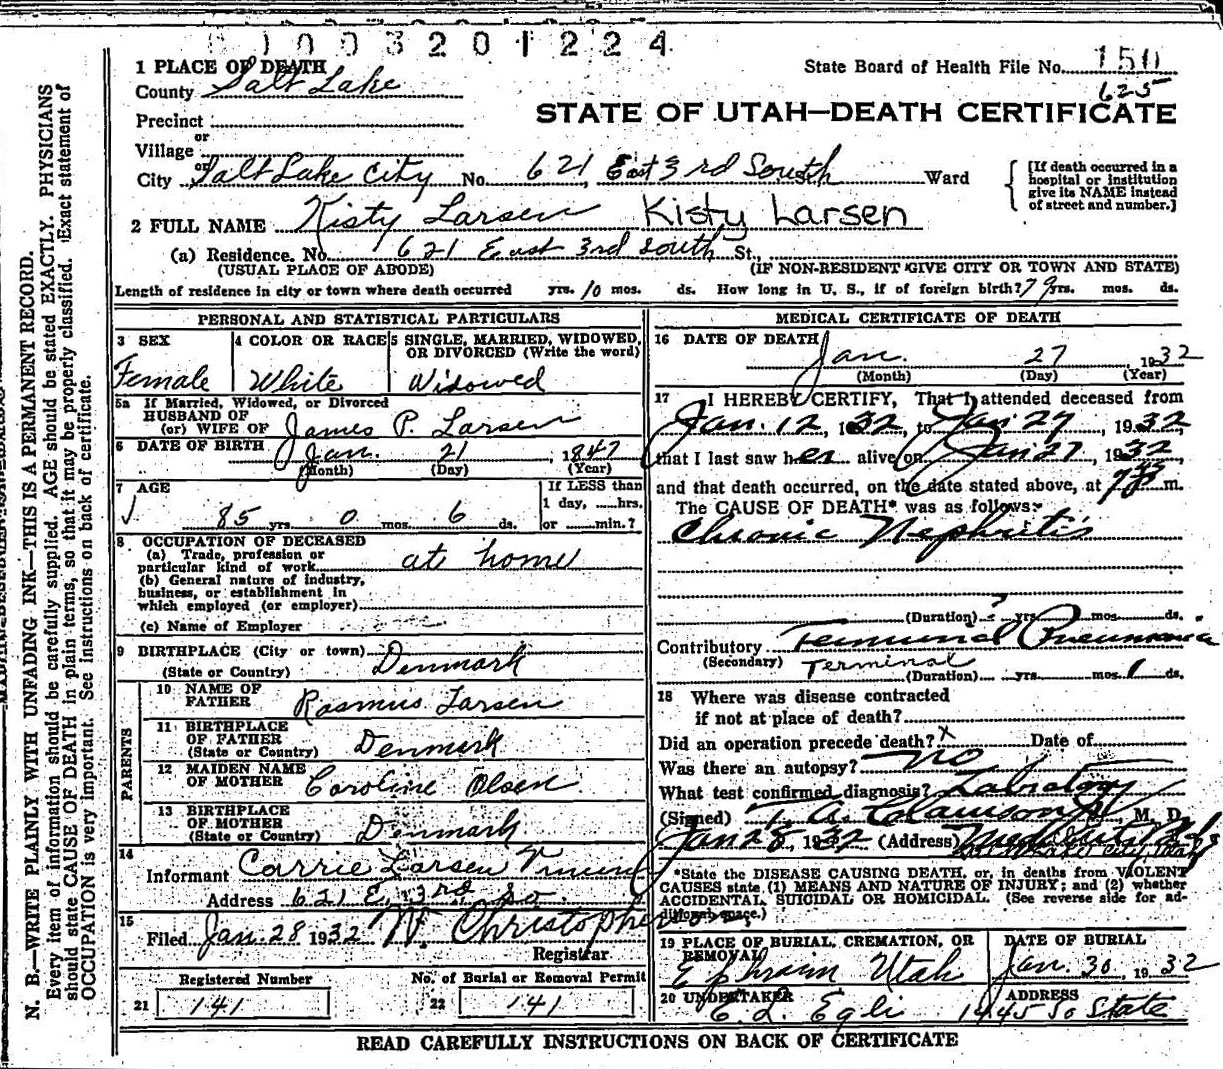 1003201224
1 PLACE OF DEATH
County Salt Lake
State Board of Health File No. 150
625
STATE OF UTAH—DEATH CERTIFICATE
Precinct
or
Village
or
City Salt Lake City No. 621, East 3rd South Ward
[If death occurred in a
hospital or institution
give its NAME instead
of street and number.]
2 FULL NAME Kisty Larsen Kisty Larsen
(a) Residence. No. 621 East 3rd South St.,
(USUAL PLACE OF ABODE) (IF NON-RESIDENT GIVE CITY OR TOWN AND STATE)
Length of residence in city or town where death occurred yrs. 10 mos. ds. How long in U. S., if of foreign birth? 79 yrs. mos. ds.
PERSONAL AND STATISTICAL PARTICULARS
3 SEX
Female
4 COLOR OR RACE
White
5 SINGLE, MARRIED, WIDOWED,
OR DIVORCED (Write the word)
Widowed
5a If Married, Widowed, or Divorced
HUSBAND OF
(or) WIFE OF James P. Larsen
6 DATE OF BIRTH Jan. 21, 1847
(Month) (Day) (Year)
7 AGE
85 yrs. 0 mos. 6 ds.
If LESS than
1 day, ......hrs.
or ......min.?
8 OCCUPATION OF DECEASED
(a) Trade, profession or
particular kind of work at home
(b) General nature of industry,
business, or establishment in
which employed (or employer)
(c) Name of Employer
9 BIRTHPLACE (City or town)
(State or Country) Denmark
PARENTS
10 NAME OF
FATHER Rasmus Larsen
11 BIRTHPLACE
OF FATHER
(State or Country) Denmark
12 MAIDEN NAME
OF MOTHER Caroline Olsen
13 BIRTHPLACE
OF MOTHER
(State or Country) Denmark
14
Informant Carrie Larsen
Address 621 E. 3rd So.
15
Filed Jan. 28 1932 W. Christopherson,
Registrar
Registered Number
21 141
No. of Burial or Removal Permit
22 141
MEDICAL CERTIFICATE OF DEATH
16 DATE OF DEATH
Jan. 27, 1932
(Month) (Day) (Year)
17 I HEREBY CERTIFY, That I attended deceased from
Jan. 12, 1932, to Jan 27, 1932,
that I last saw her alive on Jan 27, 1932,
and that death occurred, on the date stated above, at m.
The CAUSE OF DEATH* was as follows:
Chronic Nephritis
(Duration) ? yrs. mos. ds.
Contributory Terminal Pneumonia
(Secondary) Terminal
(Duration) yrs. mos. 1 ds.
18 Where was disease contracted
if not at place of death?
Did an operation precede death? x Date of
Was there an autopsy? No
What test confirmed diagnosis? Labratory
(Signed) T. A. Clawson Jr, M. D.
Jan 28, 1932 (Address)
*State the DISEASE CAUSING DEATH, or, in deaths from VIOLENT
CAUSES state (1) MEANS AND NATURE OF INJURY; and (2) whether
ACCIDENTAL, SUICIDAL OR HOMICIDAL. (See reverse side for ad-
ditional space.)
19 PLACE OF BURIAL, CREMATION, OR
REMOVAL
Ephraim Utah
DATE OF BURIAL
Jan. 30, 1932
20 UNDERTAKER
E. L. Egli
ADDRESS
1445 So State
READ CAREFULLY INSTRUCTIONS ON BACK OF CERTIFICATE
N. B.—WRITE PLAINLY WITH UNFADING INK—THIS IS A PERMANENT RECORD.
Every item of information should be carefully supplied. AGE should be stated EXACTLY. PHYSICIANS
should state CAUSE OF DEATH in plain terms, so that it may be properly classified. Exact statement of
OCCUPATION is very important. See instructions on back of certificate.